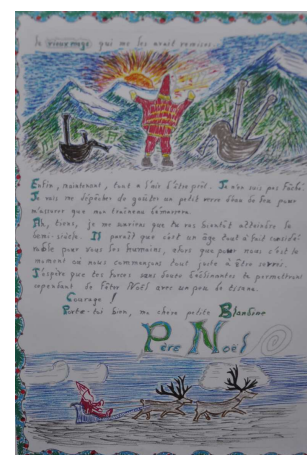 le vieux mage qui me les avait remises.
Enfin, maintenant, tout a l'air d'être prêt. Je n'en suis pas fâché.
Je vais me dépêcher de goûter un petit verre d'eau de feu pour
m'assurer que mon traineau démarrera.
Ah, tiens, je me aperçois que tu vas bientôt atteindre le
demi-siècle. Il paraît que c'est un âge tout à fait considé-
rable pour vous les humains, alors que pour nous c'est le
moment où nous commençons tout juste à être
J'espère que tes forces sans doute déclinantes te permettront
cependant de fêter Noël avec un peu de tisane.
Courage !
Porte-toi bien, ma chère petite Blandine
Père Noël